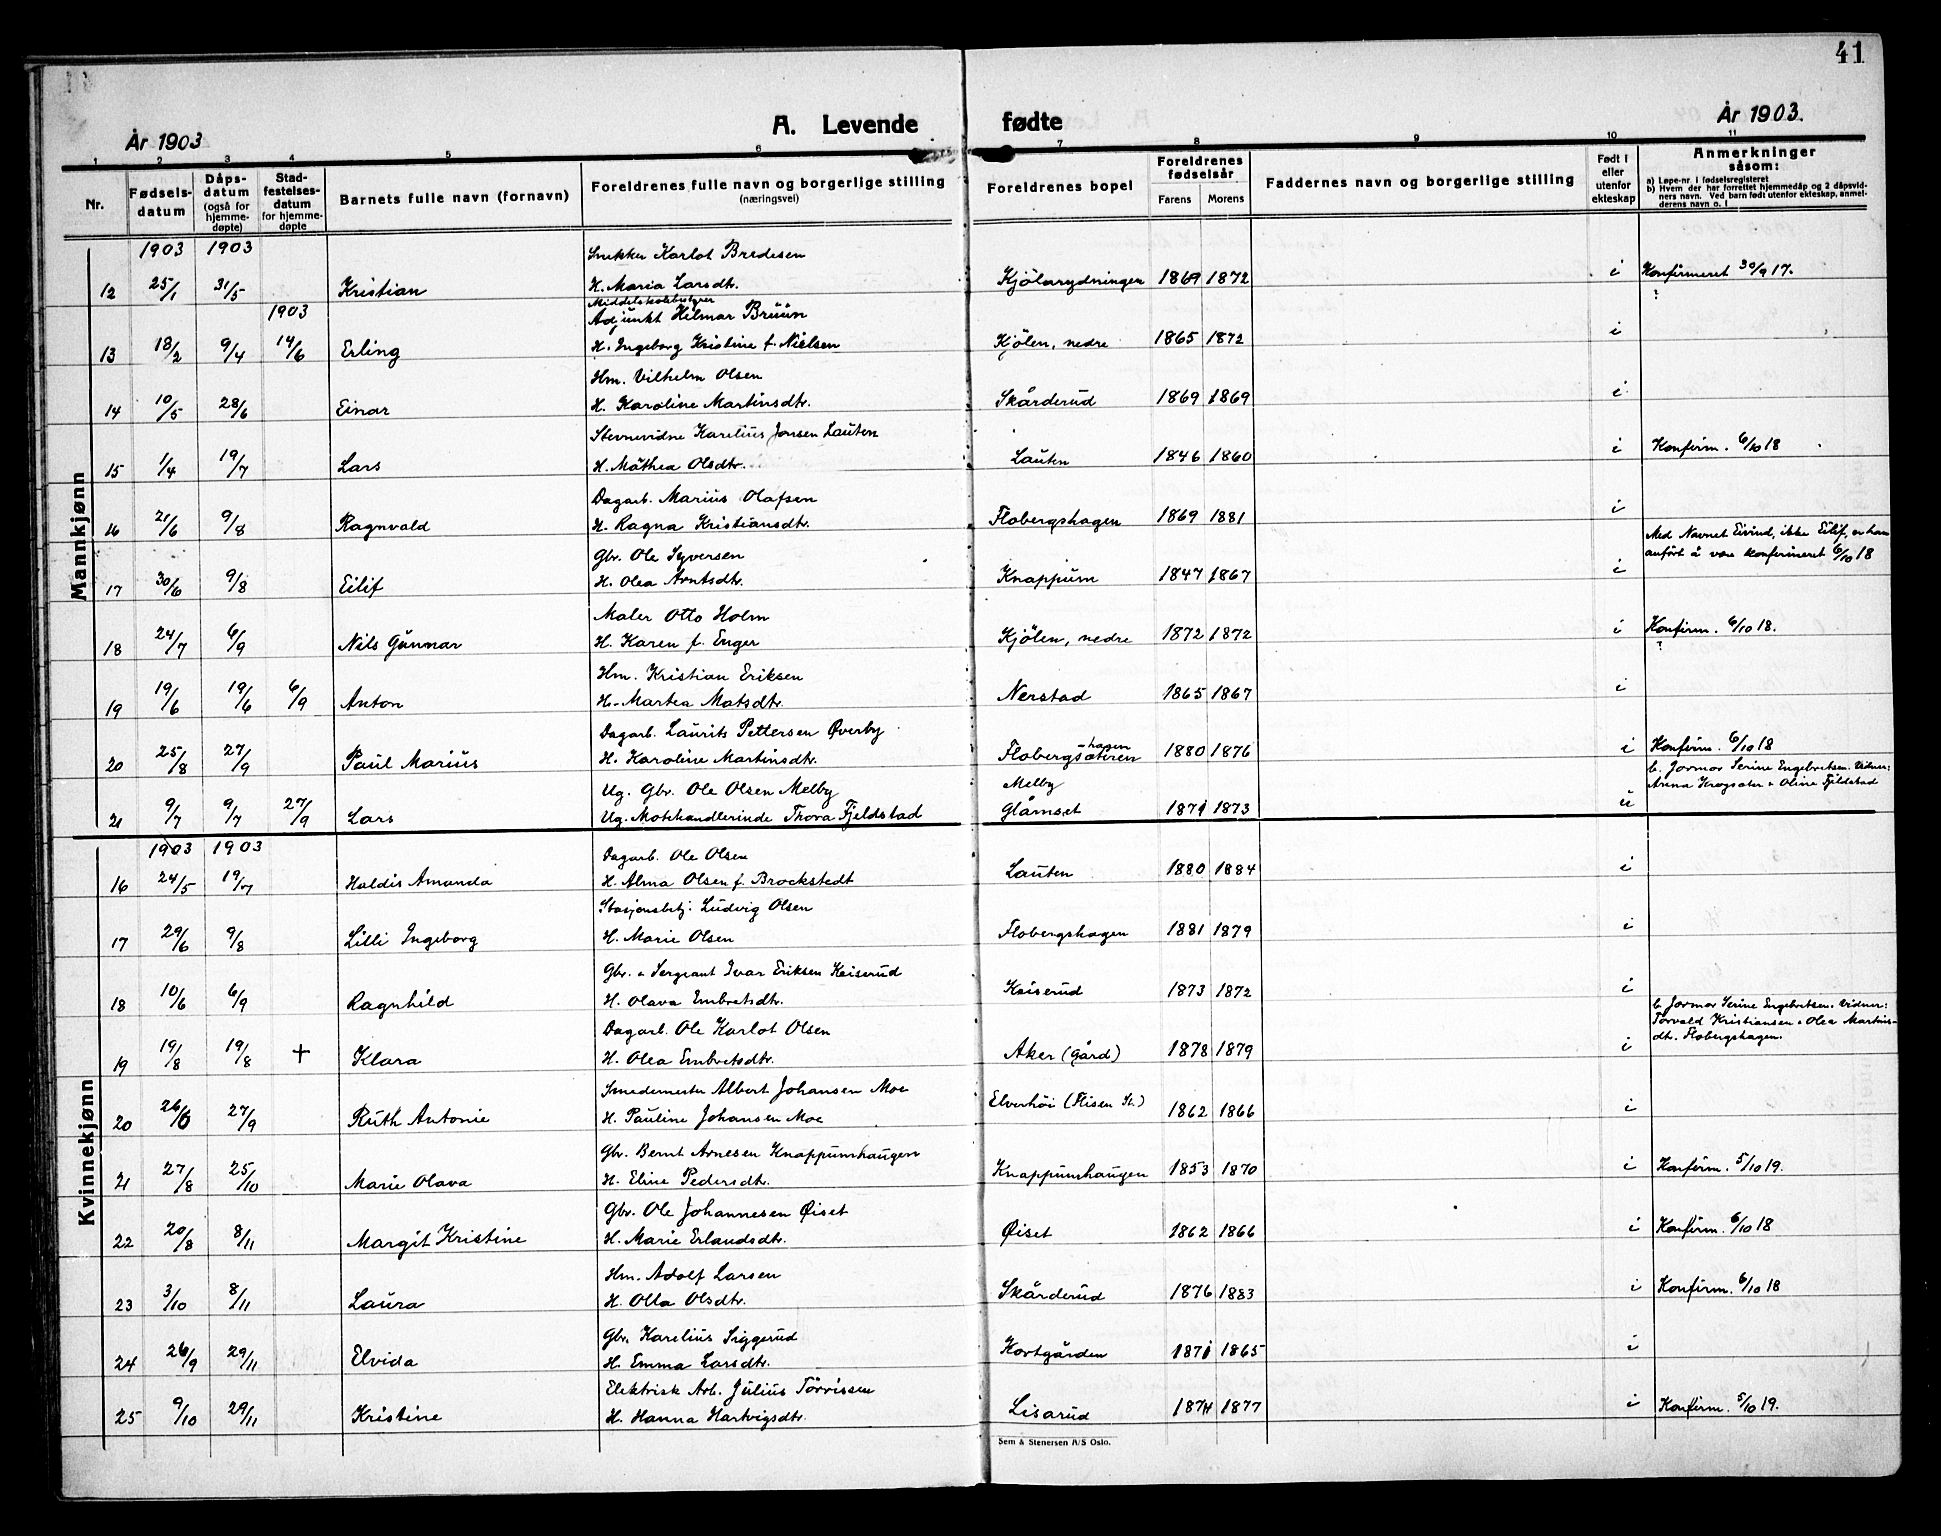 41
År 1903 A. Levende fødte År 1903.
1 2 3 4 5 6 7 8 9 10 11
Nr. Fødsels-datum Dåps-datum (også for hjemme-døpte) Stad-festelses-datum for hjemme-døpte Barnets fulle navn (fornavn) Foreldrenes fulle navn og borgerlige stilling (næringsvei) Foreldrenes bopel Foreldrenes fødselsår Farens Morens Faddernes navn og borgerlige stilling Født i eller utenfor ekteskap Anmerkninger såsom: a) Løpe-nr. i fødselsregisteret b) Hvem der har forrettet hjemmedåp og 2 dåpsvidners navn. Ved barn født utenfor ekteskap, anmelderens navn o. l
Mannkjønn
1903 1903 Snekker Karlot Bredesen
12 25/1 31/5 Kristian H. Maria Larsdtr. Kjölarydningen 1869 1872 i Konfirmeret 30/9 17.
1903 Middelskolebestyrer ?
Adjunkt Hilmar Brüün
13 18/2 9/4 14/6 Erling H. Ingeborg Kristine f. Nielsen Kjölen, nedre 1865 1872 i
Hm. Vilhelm Olsen
14 10/5 28/6 Einar H. Karoline Martinsdtr. Skårderud 1869 1869 i
Stevnevidne Karelius Jonsen Lauten
15 1/4 19/7 Lars H. Mathea Olsdtr. Lauten 1846 1860 i Konfirm. 6/10 18
Dagarb. Marius Olafsen
16 21/6 9/8 Ragnvald H. Ragna Kristiansdtr. Flobergshagen 1869 1881 i
Med Navnet Eivind, ikke Eilif, er han
Gbr. Ole Syversen anfört å være konfirmeret 6/10 18
17 30/6 9/8 Eilif H. Olea Arntsdtr. Knappum 1847 1867 i
Maler Otto Holm
18 24/7 6/9 Nils Gunnar H. Karen f. Enger Kjölen, nedre 1872 1872 i Konfirm. 6/10 18.
?
Hm. Kristian Eriksen
19 19/6 19/6 6/9 Anton H. Martea Matsdtr. Nerstad 1865 1867 i
Dagarb. Laurits Pettersen Øverby -hagen
20 25/8 27/9 Paul Marius H. Karoline Martinsdtr. Flobergsætren 1880 1876 i Konfirm. 6/10 18
Ug. Gbr. Ole Olsen Melby Melby b. Jormor Serine Engebretsen. Vidner:
21 9/7 9/7 27/9 Lars Ug. Motehandlerinde Thora Fjeldstad Glåmset 1871 1873 ü Arena Kragsater + Oline Fjeldstad
Kvinnekjønn
1903 1903 Dagarb. Ole Olsen
16 24/5 19/7 Haldis Amanda H. Alma Olsen f. Brockstedt Lauten 1880 1884 i
Stasjonsbetj. Ludvig Olsen
17 29/6 9/8 Lilli Ingeborg H. Marie Olsen Flobergshagen 1881 1879 i
Gbr. + Sergeant Ivar Eriksen Keiserud
18 10/6 6/9 Ragnhild H. Olava Embretsdtr. Keiserud 1873 1872 i
Dagarb. Ole Karlot Olsen b. Jormor Serine Engebretsen. Vidner:
Torvald Kristiansen + Olea Martins-
19 19/8 19/8 + Klara H. Olea Embretsdtr. Aker (Gård) 1878 1879 i dtr. Flobergshagen.
Smedemester Albert Johansen Moe
20 26/6 27/9 Ruth Antonie H. Pauline Johansen Moe Elverhöi (Flisen St.) 1862 1866 i
Gbr. Bernt Arnesen Knappumshaugen
21 27/8 25/10 Marie Olava H. Eline Pedersdtr. Knappumshaugen 1853 1870 i Konfirm. 5/10 19.
Gbr. Ole Johannesen Øiset
22 20/8 8/11 Margit Kristine H. Marie Erlandsdtr. Øiset 1862 1866 i Konfirm. 6/10 18
Hm. Adolf Larsen
23 3/10 8/11 Laura H. Olla Olsdtr. Skårderud 1876 1883 i Konfirm. 6/10 18
Gbr. Karelius Siggerud
24 26/9 29/11 Elvida H. Emma Larsdtr. Kortgården 1871 1865 i
Elektrisk Arb. Julius Törrissen
25 9/10 29/11 Kristine H. Hanna Hartvigsdtr. Lisarud 1874 1877 i Konfirm. 5/10 19.
Sem & Stenersen A/S Oslo.